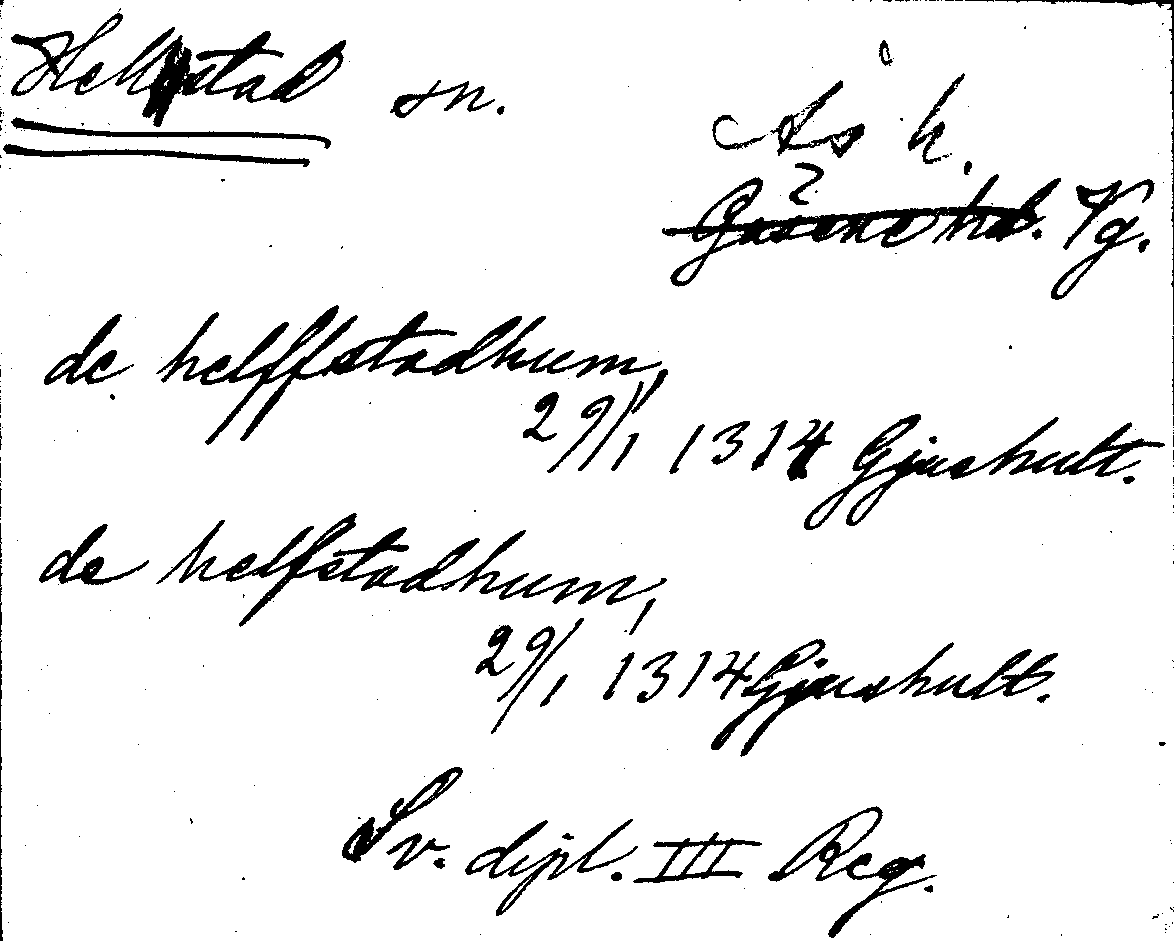 Hellestad sn.
Ås h.
Gäsene hd. Vg.
de helffstadhum,
29/1 1314 Gjushult.
de helfstadhum,
29/1 1314 Gjushult.
Sv. dipl. III Reg.